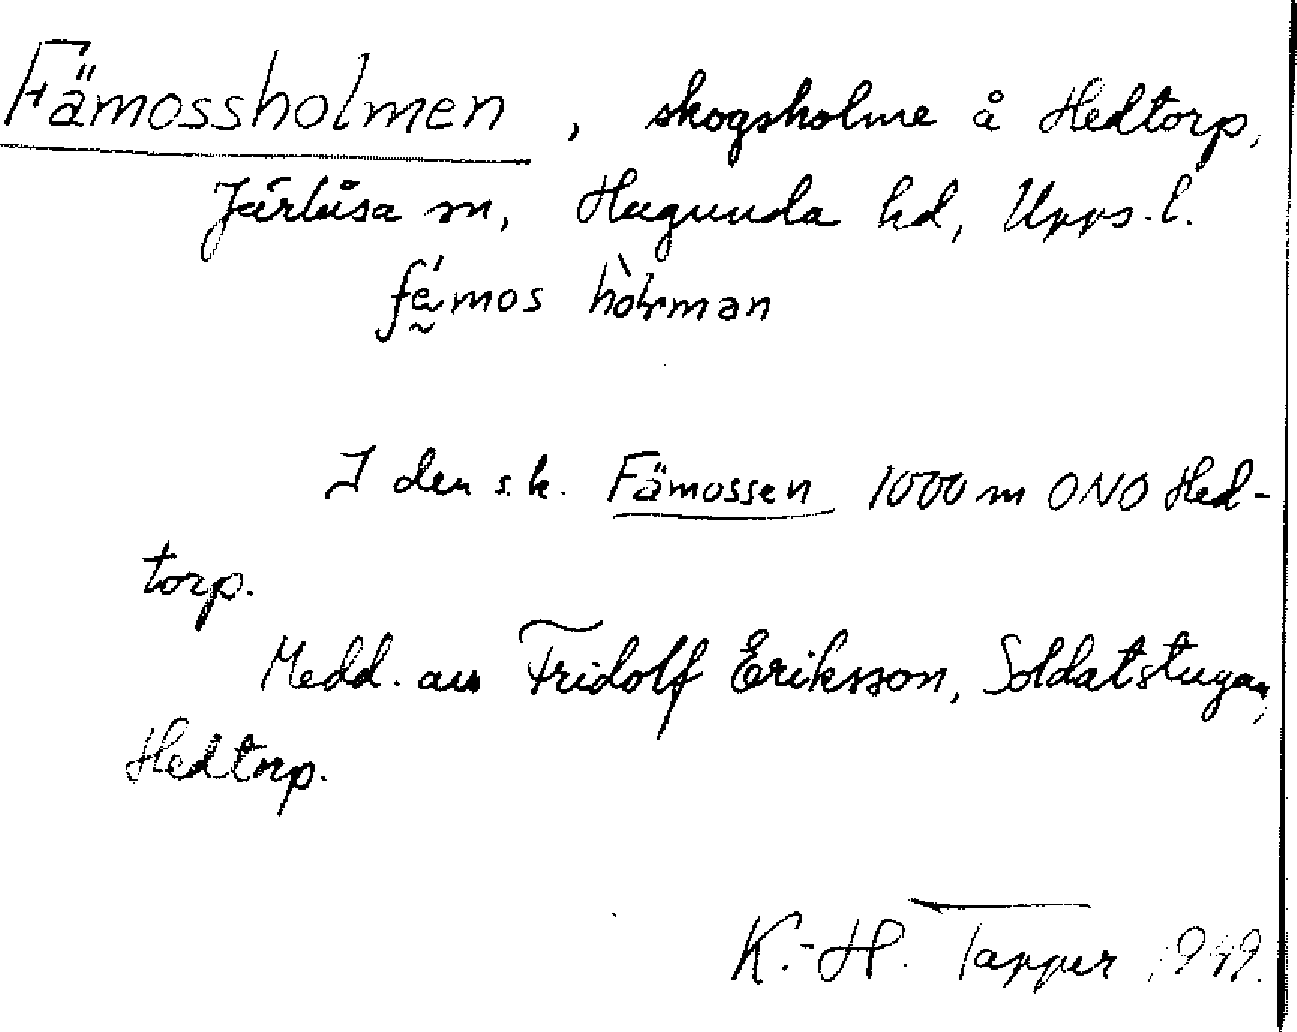 Fämossholmen, skogsholme å Hedtorp,
Järlåsa sn, Hagunda hd, Upps. l.
fḛ́mos hòlman
I den s.k. Fämossen 1000 m ONO Hed-
torp.
Medd. av Fridolf Eriksson, Soldatstugan,
Hedtorp.
K.-H. Tapper 1949.